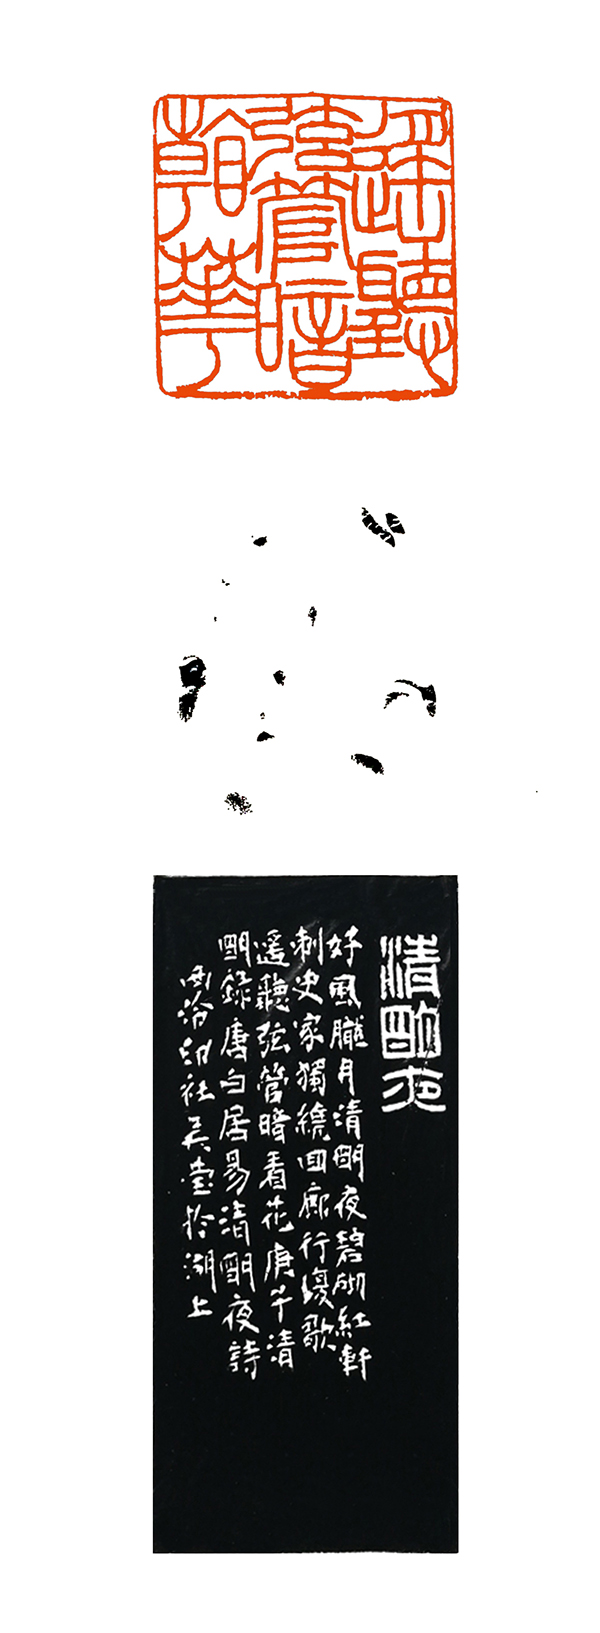 遙聽
弦管暗
看華
清朙夜
好風朧月清朙夜碧砌紅軒
刺史家獨繞回廊行復歌
遙聽弦管暗看花庚子清
朙錄唐白居易清朙夜詩
西泠印社吳於湖上